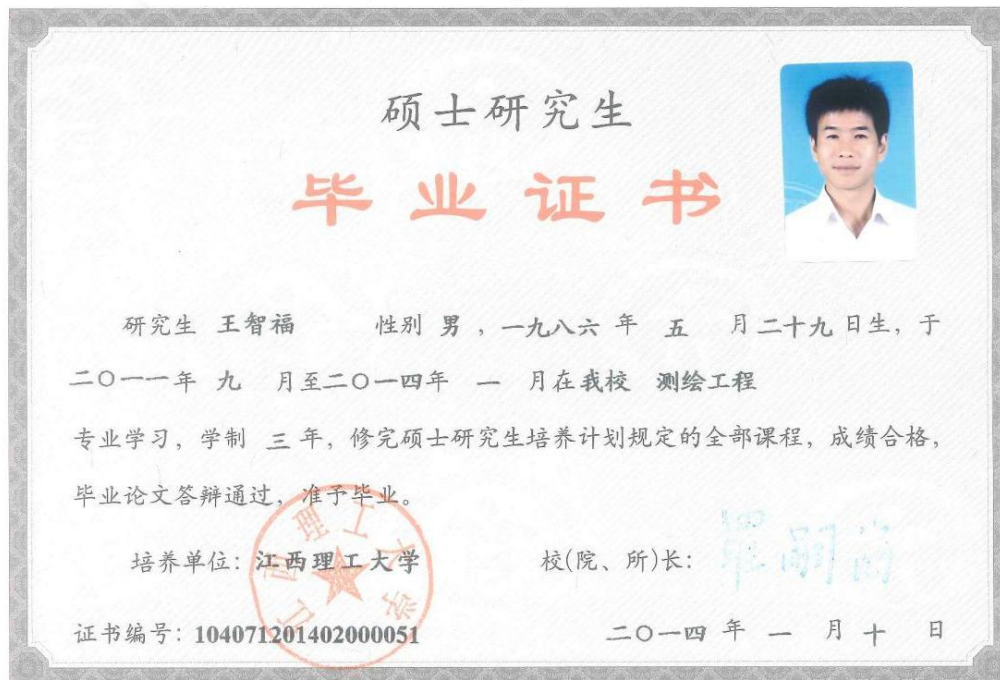 硕士研究生
毕业证书
研究生 王智福 性别 男 ，一九八六 年 五 月二十九日生，于
二〇一一年 九 月至二〇一四年 一 月在我校 测绘工程
专业学习，学制 三 年，修完硕士研究生培养计划规定的全部课程，成绩合格，
毕业论文答辩通过，准予毕业。
江西理工大学
培养单位：江西理工大学 校(院、所)长：
证书编号：104071201402000051 二〇一四 年 一 月 十 日